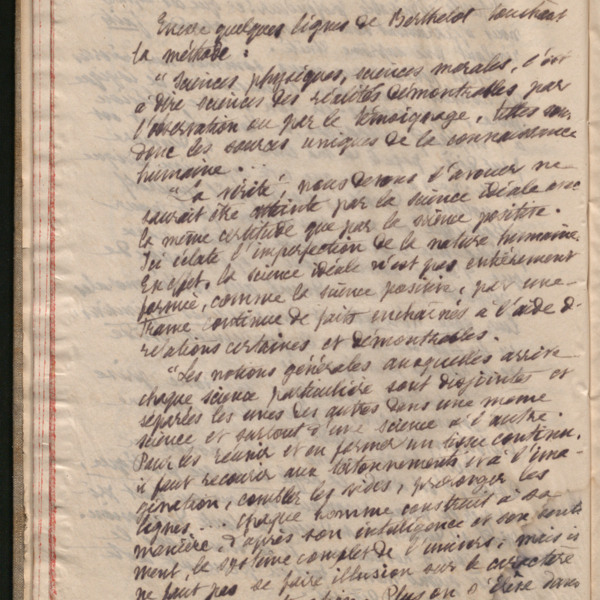 Encore quelques lignes de Berthelot touchant
la méthode :
" Sciences physiques, sciences morales, c'est
à dire sciences des réalités démontrables par
l'observation ou par le témoignage, telles sont
donc les sources uniques de la connaissance
humaine ...
"La vérité, nous devons l'avouer ne
saurait être atteinte par la science idéale avec
la même certitude que par la science positive.
Ici éclate l'imperfection de la nature humaine.
En effet, la science idéale n'est pas entièrement
formée, comme la science positive, par une
trame continue de faits enchaînés à l'aide de
relations certaines et démontrables.
"Les notions générales auxquelles arrive
chaque science particulière sont disjointes et
séparées les unes des autres dans une même
science et surtout d'une science à l'autre.
Pour les réunir et en former un tissu continu,
il faut recourir aux tâtonnements et à l'ima-
gination, combler les vides, prolonger les
lignes ... chaque homme construit à sa
manière, d'après son intelligence et son senti
ment, le système complet de l'univers; mais il
ne faut pas se faire illusion sur le caractère
Plus on s'élève dans